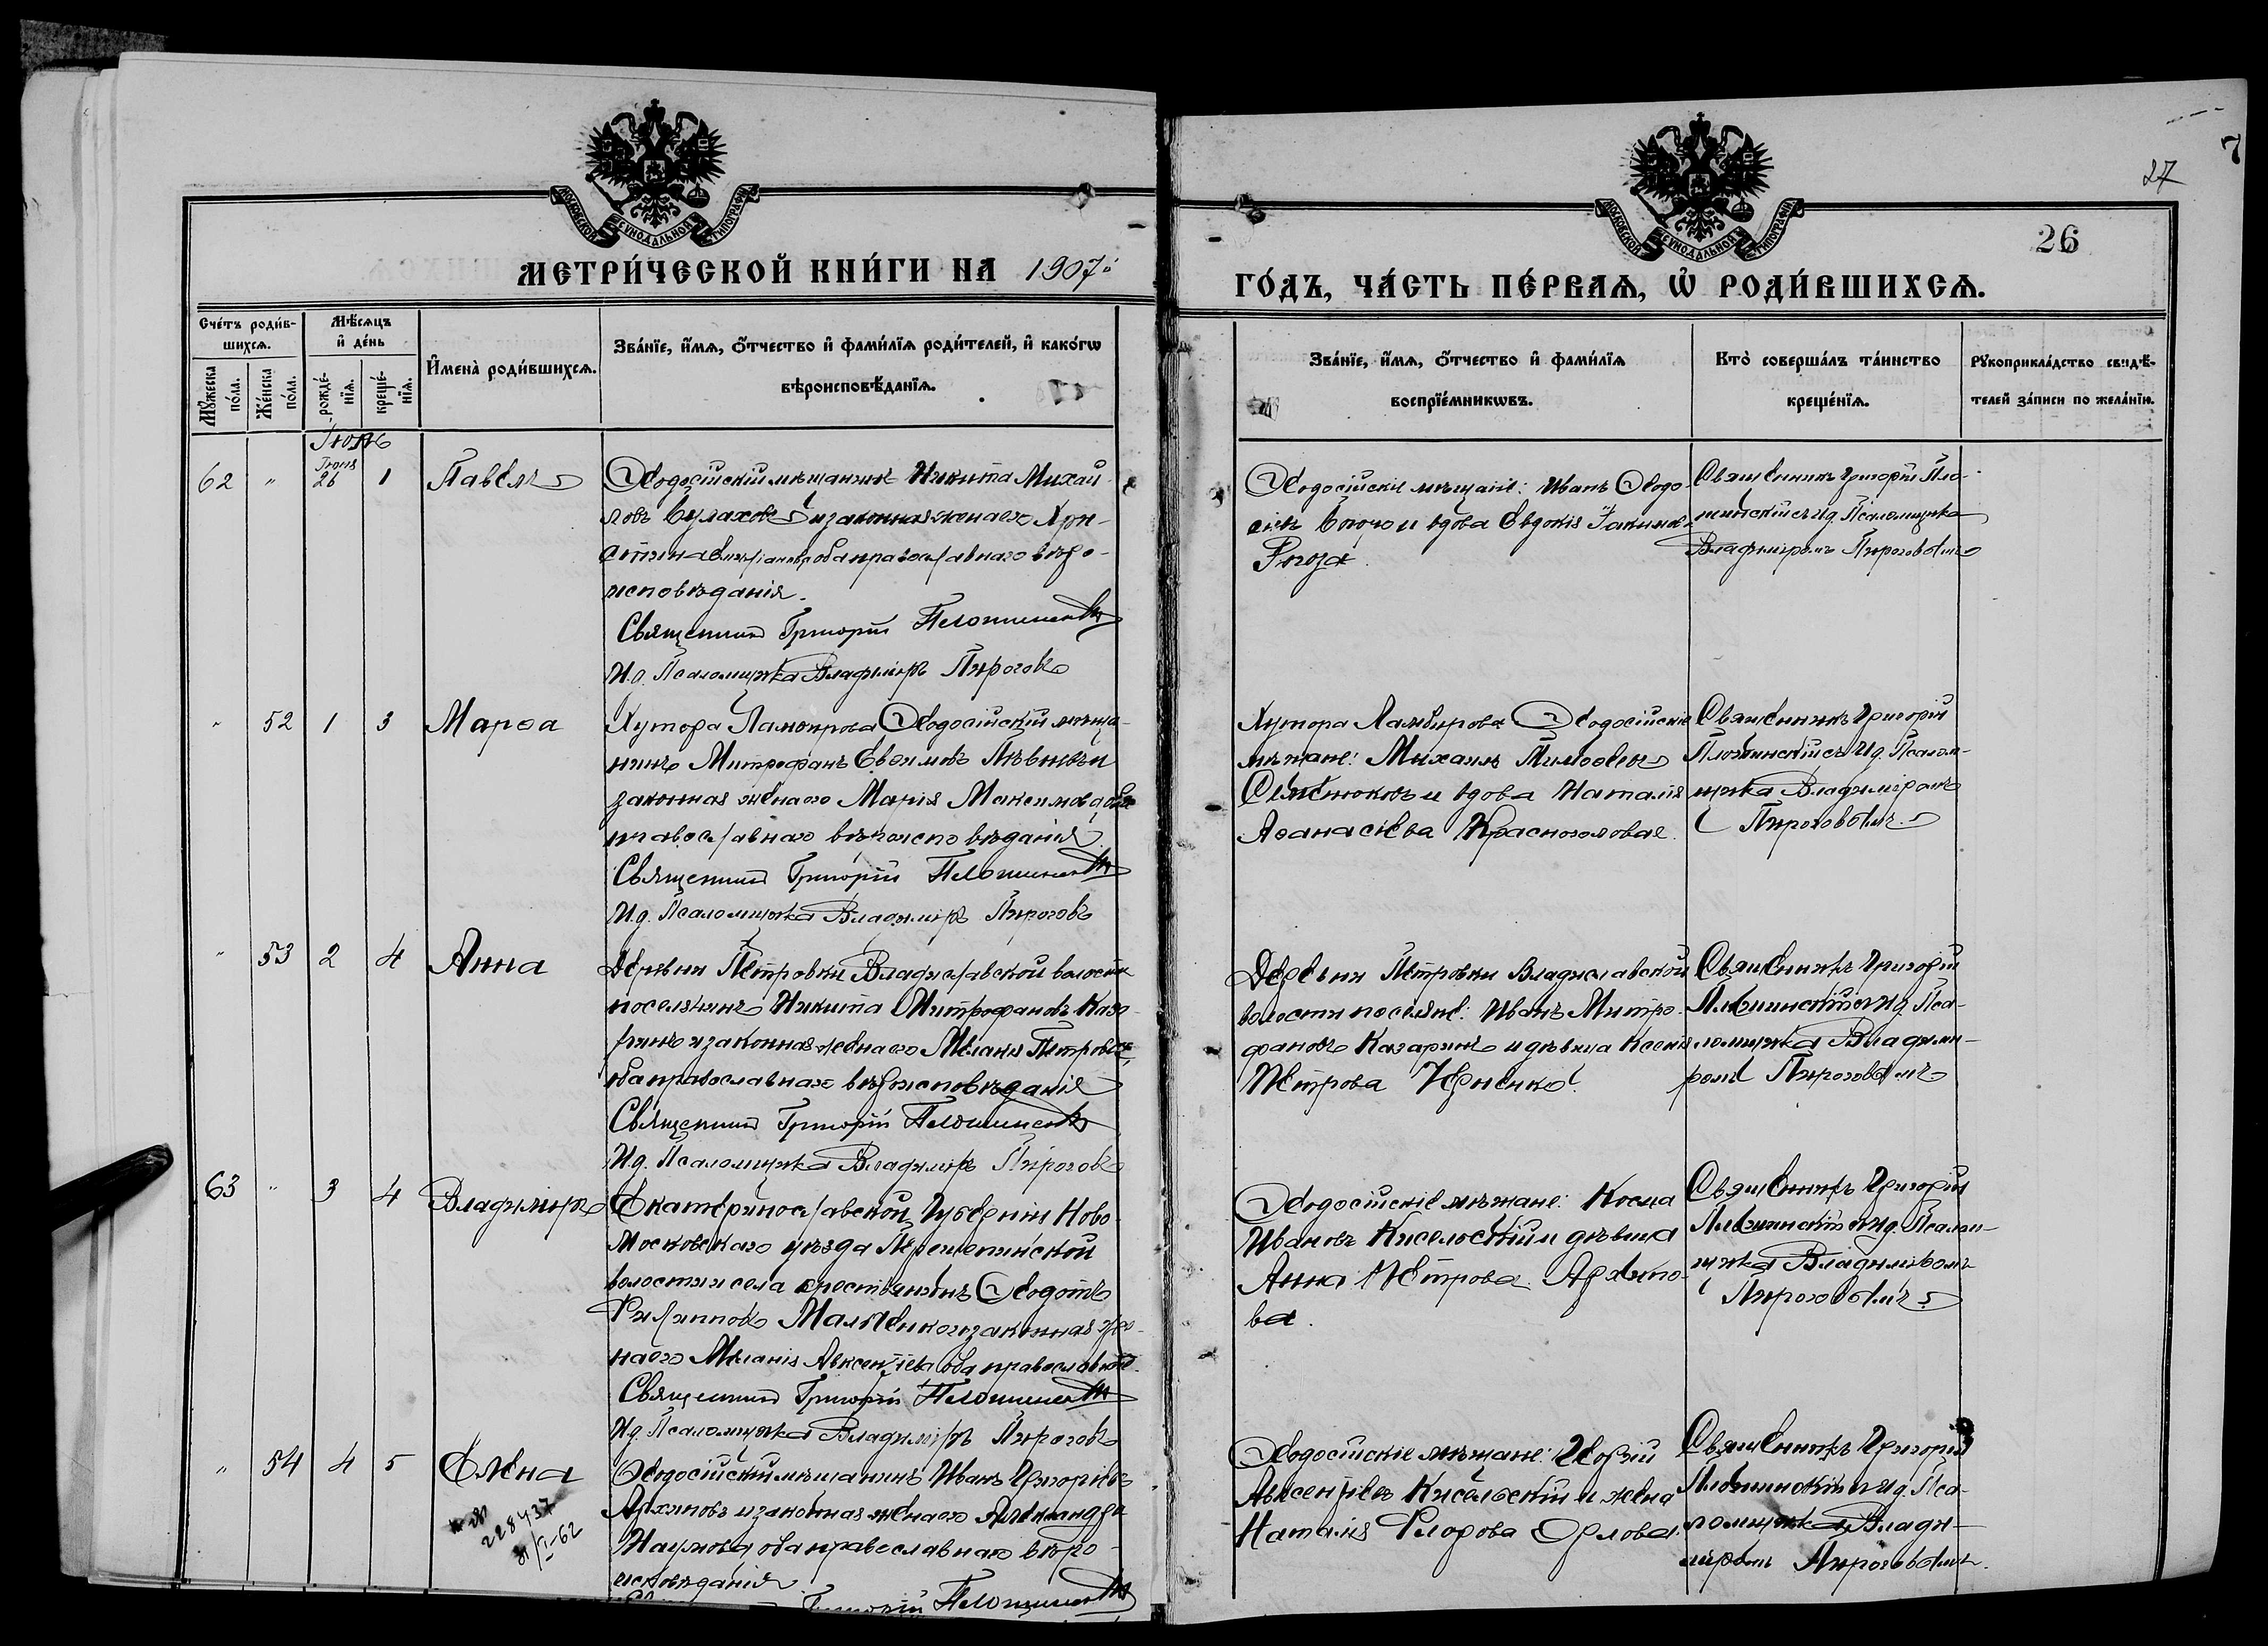 27
7
26
МОСКОВСКОЙ СѴНОДАЛЬНОЙ ТИПОГРАФІИ
МОСКОВСКОЙ СѴНОДАЛЬНОЙ ТИПОГРАФІИ
МЕТРИ́ЧЕСКОЙ КНИ́ГИ НА 1907й
ГО́ДЪ, ЧА́СТЬ ПЕ́РВАѦ, Ѡ҆ РОДИ́ВШИХСѦ.
Сче́тъ роди́в-
шихсѧ.
Мꙋ́жеска
по́ла.
Же́нска
по́ла.
Мѣ́сѧцъ
и҆ де́нь
рожде́-
нїѧ.
креще́-
нїѧ.
И҆мена̀ роди́вшихсѧ.
Зва́нїе, и҆́мѧ, ѻ҆́тчество и҆ фами́лїѧ роди́телей, и҆ како́гѡ
вѣроисповѣ́данїѧ.
Зва́нїе, и҆́мѧ, ѻ҆́тчество и҆ фами́лїѧ
воспрїе́мникѡвъ.
Кто̀ соверша́лъ та́инство
креще́нїѧ.
Рꙋкоприкла́дство свидѣ́-
телей за́писи по жела́нїю.
Іюль
62 " Іюня 26 1 Павелъ
Ѳеодосійскій мѣщанинъ Никита Михай-
ловъ Булаховъ и законная жена его Хри-
стина обаправославнаго вѣро-
исповѣданія.
Священникъ Григорій Плотинскій
И.д. Псаломщика Владиміръ Пироговъ
Ѳеодосійскіе мѣщане: Иванъ Ѳеодо-
сіевъ и вдова Евдокія
Рогоза
Священникъ Григорій Пло-
тинскій съ И.д. Псаломщика
Владиміромъ Пироговымъ
" 52 1 3 Марѳа
Хутора Ламбирова Ѳеодосійскій мѣща-
нинъ Митрофанъ Евѳимовъ и
законная жена его Марія Максимова оба
православнаго вѣроисповѣданія.
Священникъ Григорій Плотинскій
И.д. Псаломщика Владиміръ Пироговъ
Хутора Ламбирова Ѳеодосійскіе
мѣщане: Михаилъ Тимоѳеевъ
Семенюковъ и вдова Наталія
Аѳанасіева Красноголовая.
Священникъ Григорій
Плотинскій съ И.д. Псалом-
щика Владиміромъ
Пироговымъ
" 53 2 4 Анна
Деревни Петровки Владиславской волости
поселянинъ Никита Митрофановъ Каза-
ринъ и законная жена его Меланія Петрова
оба православнаго вѣроисповѣданія
Священникъ Григорій Плотинскій
И.д. Псаломщика Владиміръ Пироговъ
Деревни Петровки Владиславской
волости поселяне: Иванъ Митро-
фановъ Казаринъ и дѣвица Ксенія
Петрова
Священникъ Григорій
Плотинскій съ И.д. Пса-
ломщика Владими-
ромъ Пироговымъ
63 " 3 4 Владиміръ
Екатеринославской Губерніи Ново-
Московскаго уѣзда Перещепинской
волости и села крестьянинъ Ѳеодотъ
Филипповъ и законная же-
на его Меланія Авксентіева оба православные.
Священникъ Григорій Плотинскій
И.д. Псаломщика Владиміръ Пироговъ
Ѳеодосійскіе мѣщане: Косма
Ивановъ Кисельскій и дѣвица
Анна Петрова Архипо-
ва.
Священникъ Григорій
Плотинскій съ И.д. Псалом-
щика Владиміромъ
Пироговымъ
" 54 4 5 Елена
228437
31/I-62
Ѳеодосійскій мѣщанинъ Иванъ Григорьевъ
Архиповъ и законная жена его Александра
Наумова, оба православнаго вѣро-
исповѣданія
Григорій Плотинскій
Ѳеодосійскіе мѣщане: Георгій
Авксентіевъ Кисельскій и жена
Наталія Флорова Орлова
Священникъ Григорій
Плотинскій съ И.д. Пса-
ломщика Влади-
міромъ Пироговымъ.